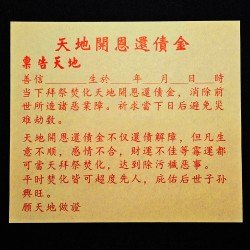 天地開恩還債金
稟告天地
善信 生於 年 月 日 時
当下拜祭焚化天地開恩還債金，消除前
世所造諸恶業障。祈求當下日后避免災
难劫数。
天地開恩還债金不仅還债解障，但凡生
意不順，感情不合，财運不佳等霉運都
可當天拜祭焚化，达到除污槭恶事。
平时焚化皆可超度先人，庇佑后世子孙
興旺。
願天地做證